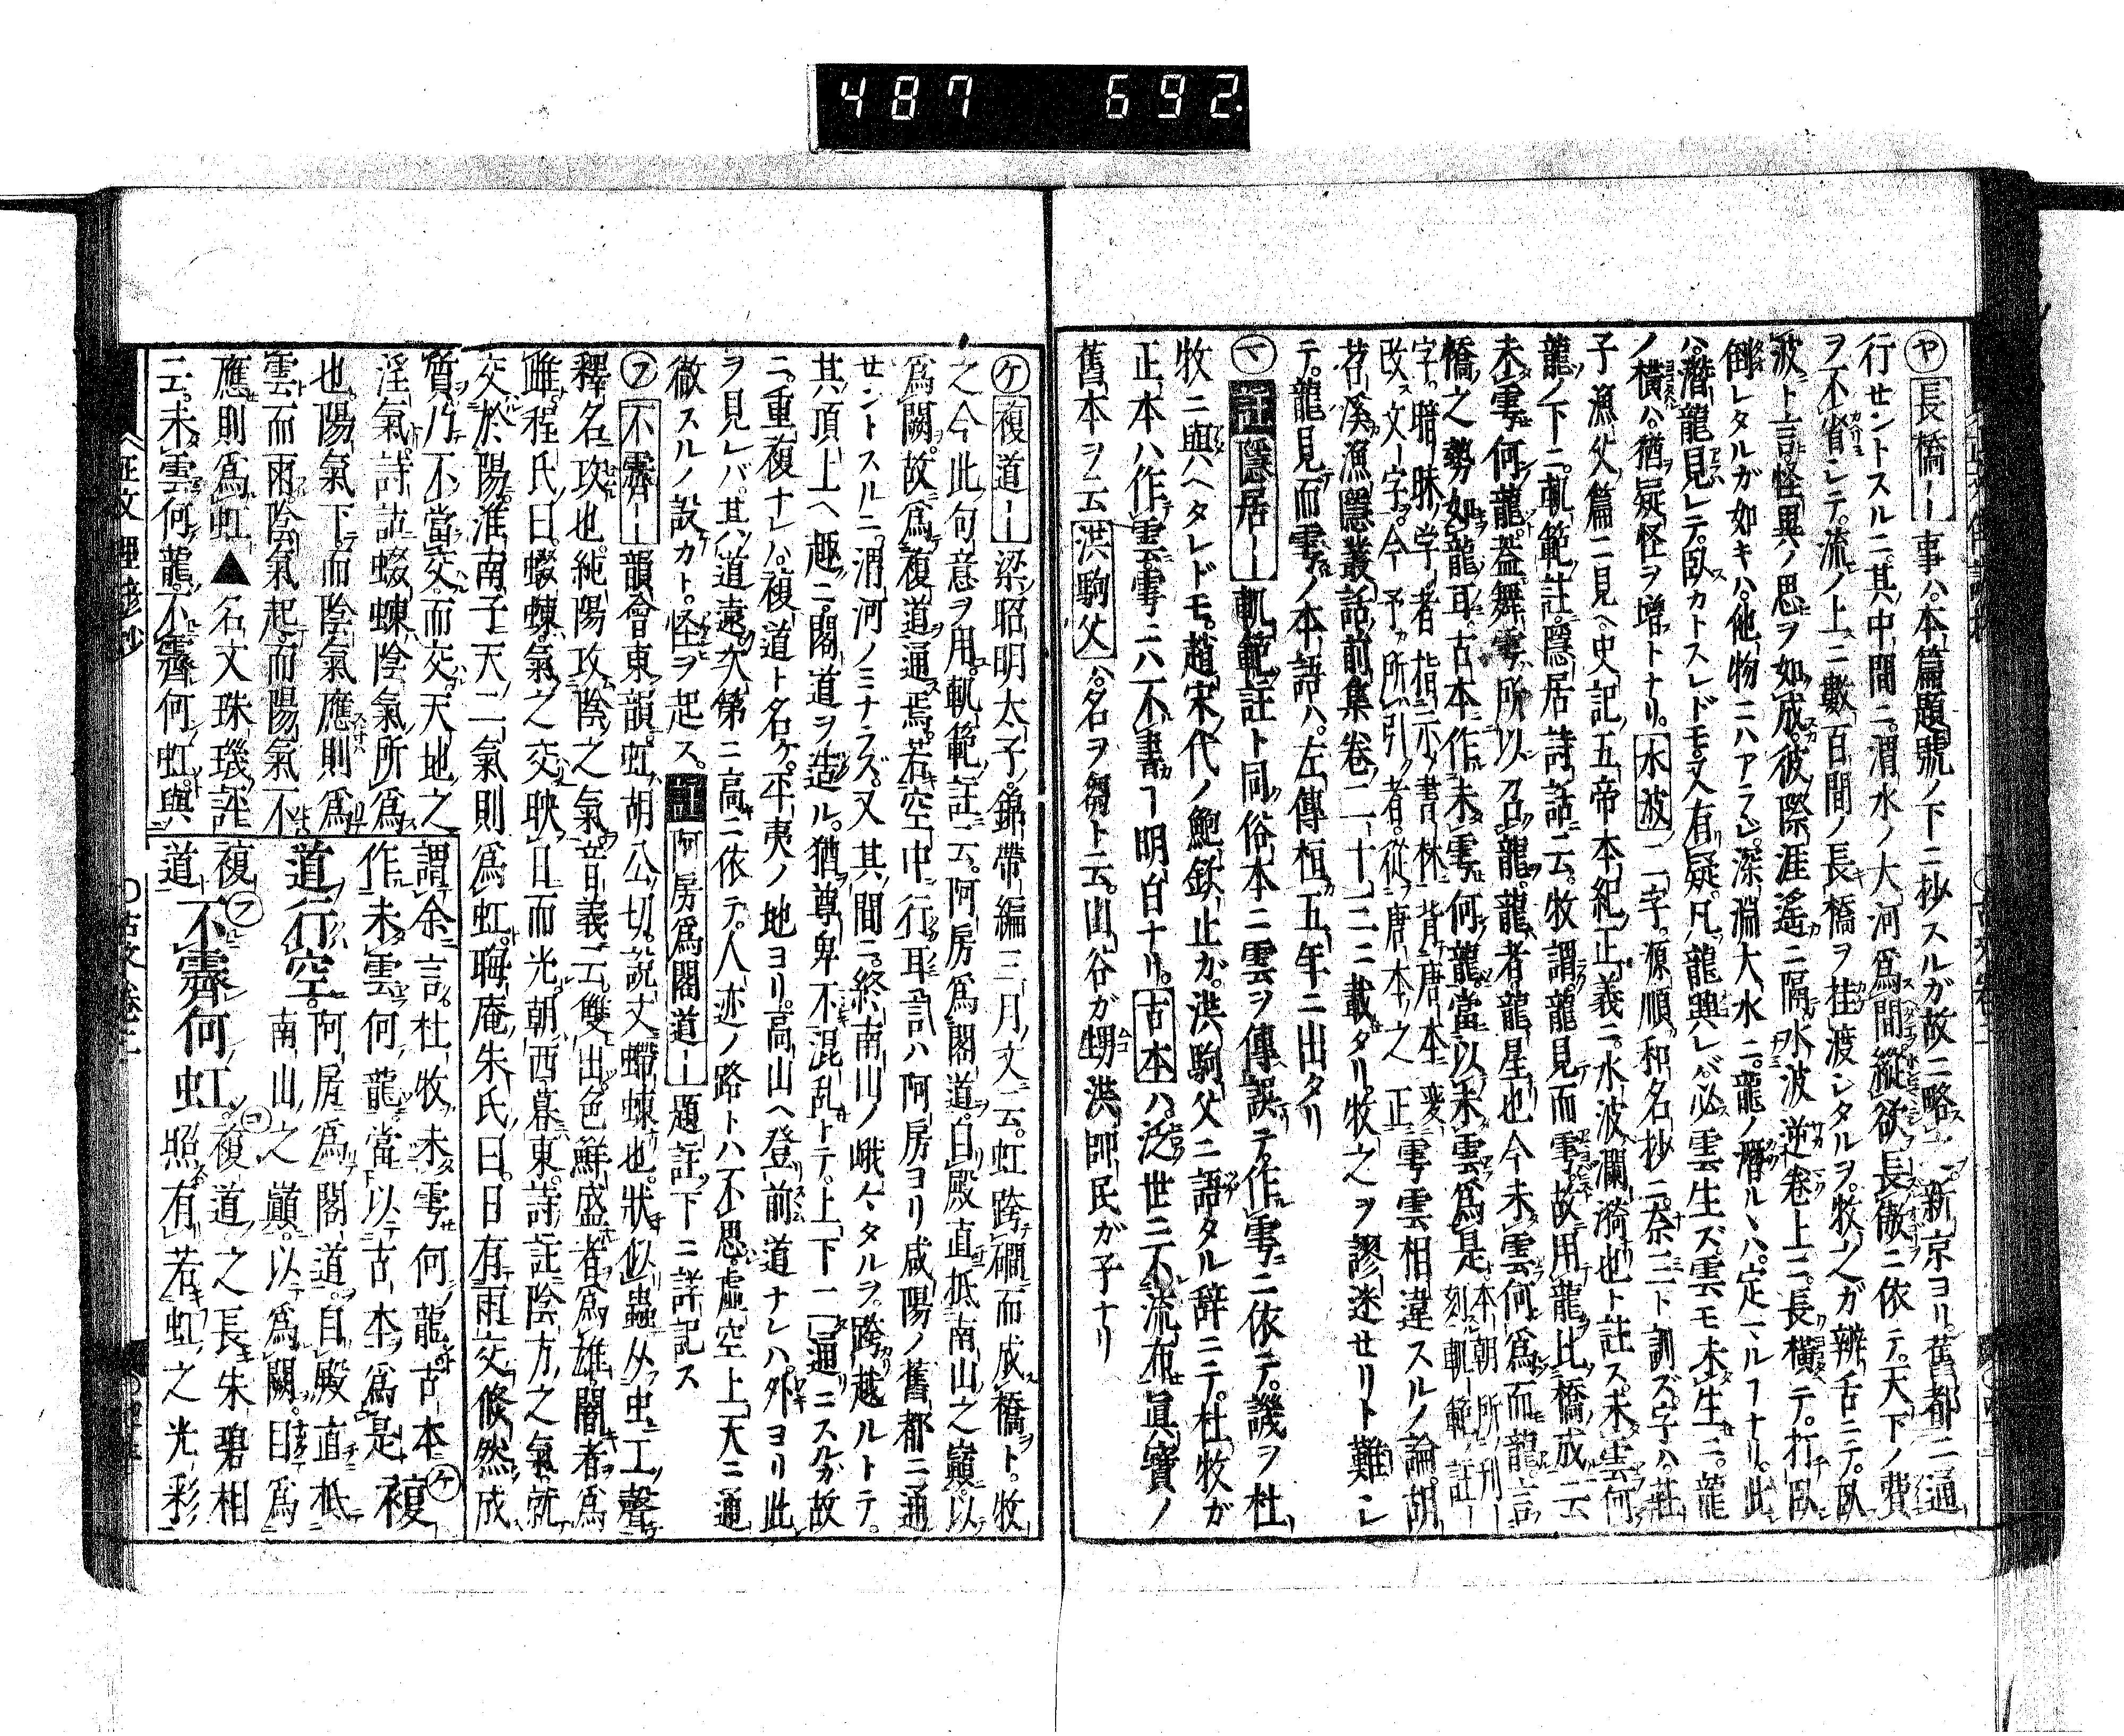 487 692.
㋳長橋ー事ハ。本篇題號ノ下ニ抄スルガ故ニ略ス。新京ヨリ。舊都ニ通
行セントスルニ。其中間ニ。渭水ノ大河爲間縱欲長傲ニ依テ。天下ノ費
ヲ不省シテ。流ノ上ニ數百間ノ長橋ヲ挂渡シタルヲ。牧之ガ辨舌ニテ。臥
波ト言怪異ノ思ヲ如成。彼際涯遙ニ隔水波逆卷上ニ。長橫テ。打臥
倒レタルガ如キハ。他物ニハアラジ。深淵大水ニ。龍ノ潛ルヽハ。定マルヿナリ。此
ハ。潛龍見レテ。臥カトスレドモ。又有疑。凡龍興レバ必雲生ズ。雲モ未生ニ。龍
ノ橫ハ。猶疑怪ヲ增トナリ。水波二字。源順和名抄ニ奈三ト訓ズ。字ハ。莊
子漁父篇ニ見ヘ。史記五帝本紀正義ニ。水波瀾漪也ト註ス。未雲何
龍ノ下ニ。軌範註。隱居詩話ニ云。牧謂龍見而雩。故用龍比橋。成云
未雩何龍。蓋舞雩所以召龍。龍者龍星也今未雲何爲而龍。言
橋之勢如龍耳。古本作未雩何龍。當以未雲爲是本朝所刊ー刻軌範註ー
字。暗昧学者指示書林背唐本変
改文ー字。今予所引者。從唐本之正雩雲相違スルノ論。胡
苕溪漁隱叢話前集卷二十三ニ載タリ。牧之ヲ謬迷セリト難シ
テ。龍見而雩ノ本語ハ。左傳桓五年ニ出タリ
㋮註隱居ー軌範註ト同。俗本ニ雲ヲ傳誤テ。作雩ニ依テ。譏ヲ杜
牧ニ與ヘタレドモ。趙宋代ノ鮑欽止ガ。洪駒父ニ語タル辞ニテ。杜牧ガ
正本ハ作雲雩ニハ不書ヿ明白ナリ。古本ハ。泛世ニ不流布眞實ノ
舊本ヲ云洪駒父ハ。名ヲ芻ト云。山谷ガ甥洪師民ガ子ナリ
㋘複道ー梁昭明太子錦帶編三月文云。虹跨磵而成橋ト。牧
之今此句意ヲ用。軌範註云。阿房爲閣道。自殿直抵南山之巓。以
爲闕。故爲複道通焉。若空中行耳言ハ阿房ヨリ咸陽ノ舊都ニ通
セントスルニ。渭河ノミナラズ。又其間ニ。終南山ノ峨々タルヲ。跨越ルトテ。
其頂上ヘ趣ニ。閣道ヲ造ル。猶尊卑不混乱トテ。上下二通ニスルガ故
ニ。重複ナレバ。複道ト名ケ。平夷ノ地ヨリ。高山ヘ登前道ナレハ。外ヨリ此
ヲ見レバ。其道遠次第ニ高ニ依テ。人迹ノ路トハ不思。虛空上天ニ通
徹スルノ設カト。怪ヲ起ス。註阿房爲閣道ー題註下ニ詳記ス
㋫不霽ー韻會東韻。虹胡公切。說文螮蝀也。狀似蟲从虫工聲
釋名攻也。純陽攻陰之氣。音義云雙出色鮮盛者爲雄。闇者爲
雌。程氏曰。蝃蝀氣之交映日而光。朝西暮東。詩註陰方之氣就
交於陽。淮南子天二氣則爲虹。晦庵朱氏曰。日有雨交倏然成
質。乃不當交而交。天地之
淫氣。詩註蝃蝀陰氣所爲
也。陽氣下。而陰氣應則爲
雲而雨。陰氣起而陽氣不
應則爲虹▲名文珠璣評
云。未雲何龍。不霽何虹。與
謂余言。杜牧未雩何龍古本
作未雲何龍當以古本爲是㋘複
道行空。阿房爲閣道。自殿直抵
南山之巓。以爲闕。因爲
複㋫不霽何虹。複道之長朱碧相
道照有若虹之光彩